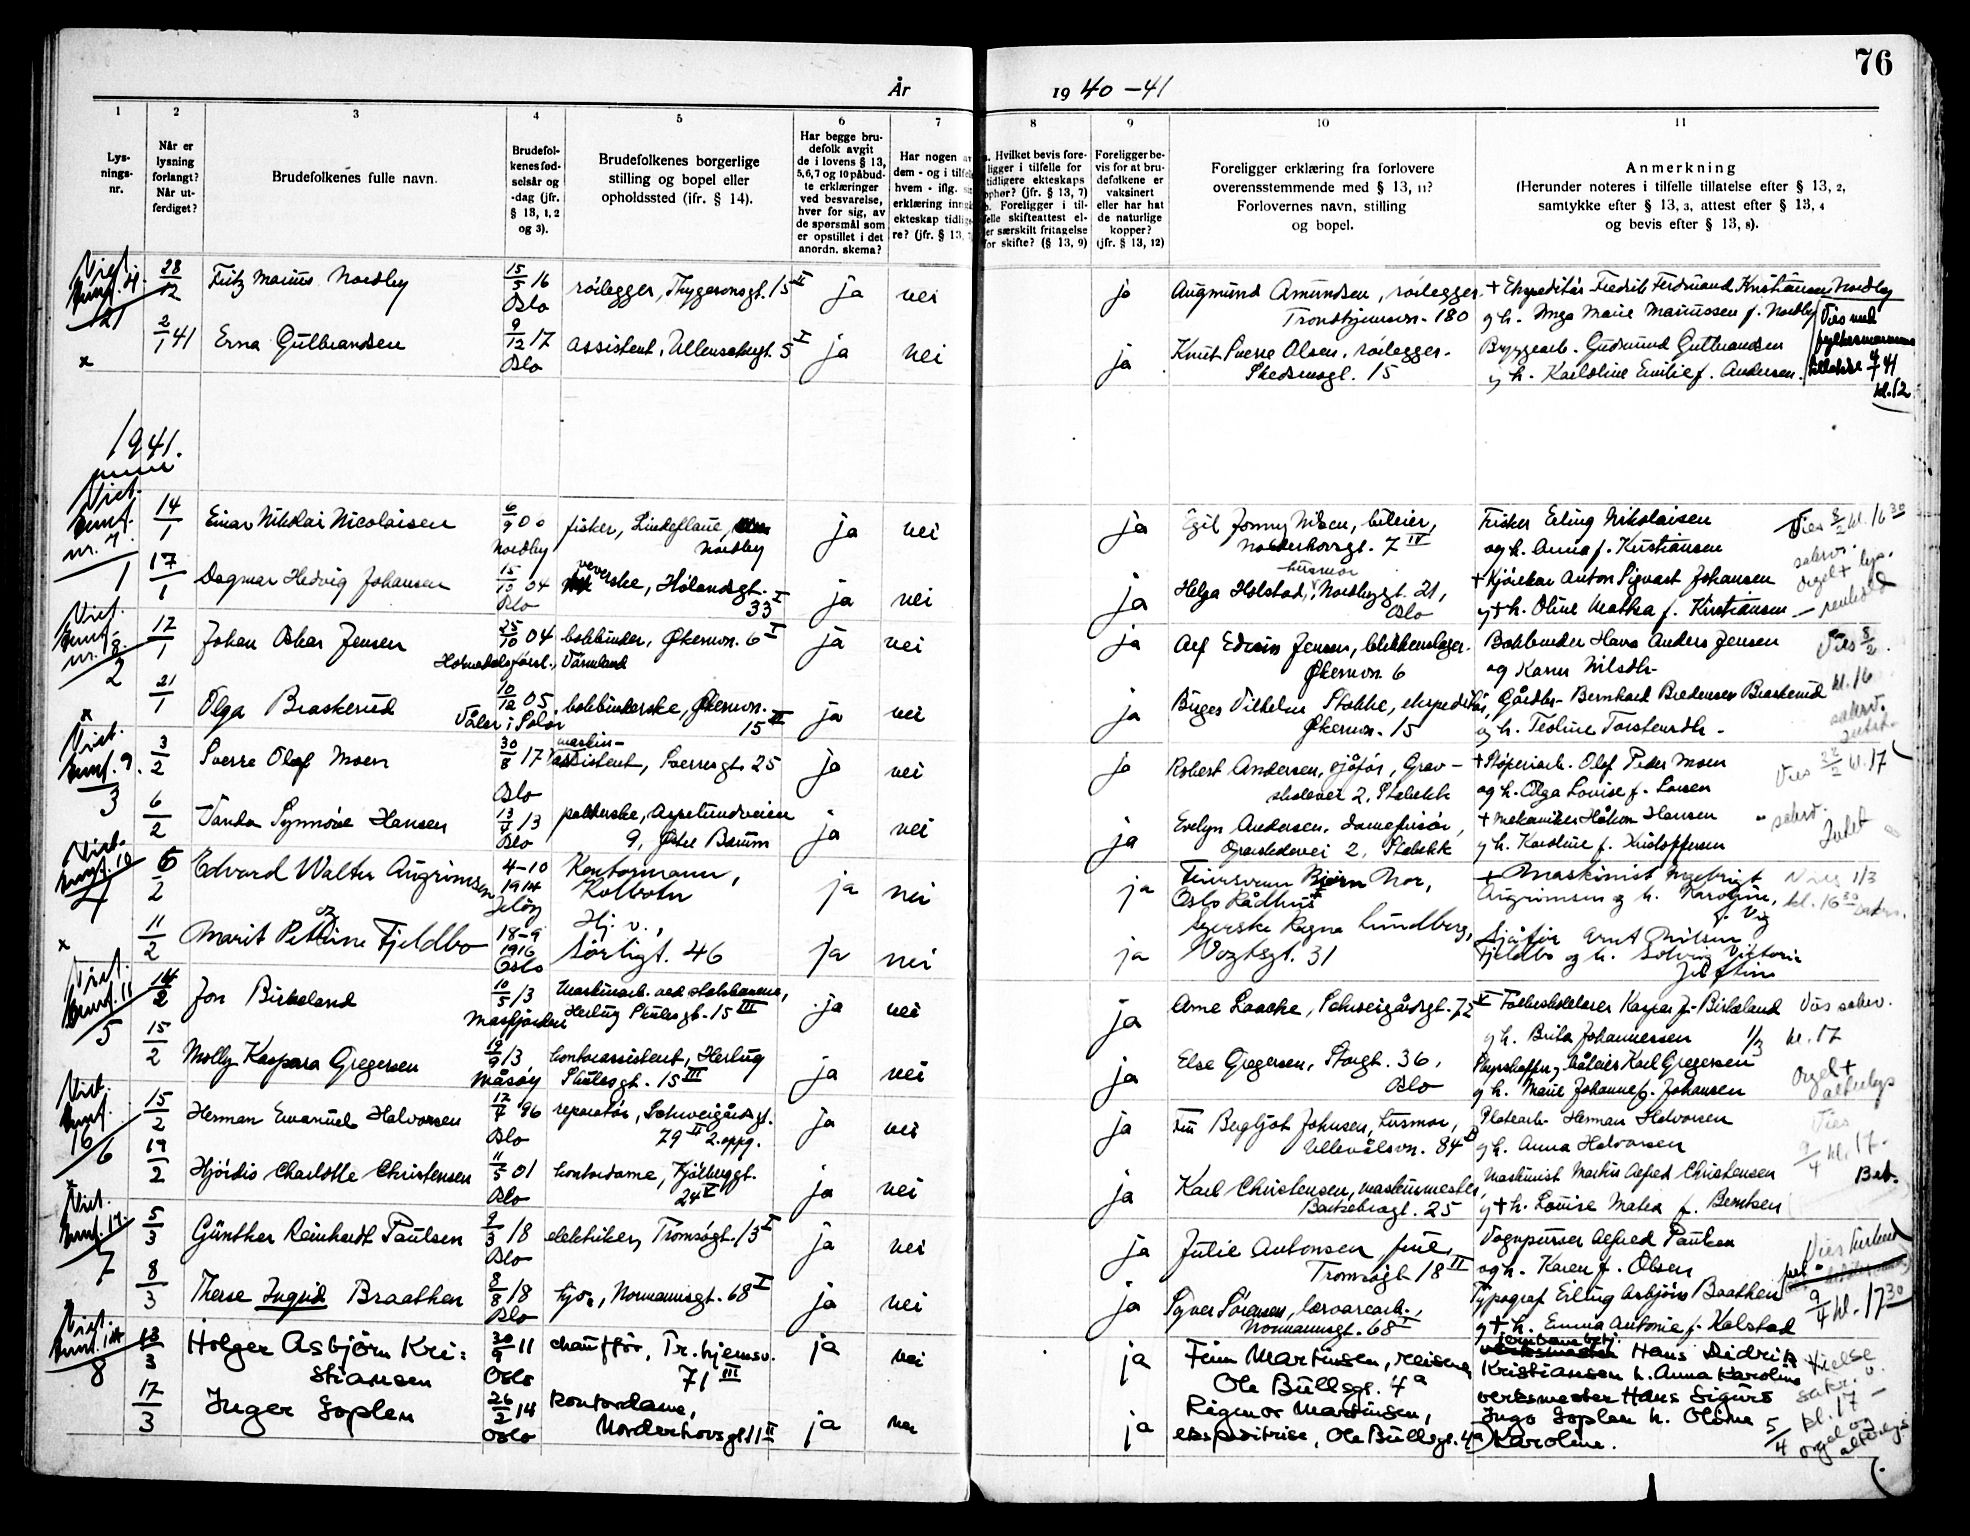 76
År 1940-41
1
2
3
4
5
6
7
8
9
10
11
Lys-
nings-
nr.
Når er
lysning
forlangt?
Når ut-
ferdiget?
Brudefolkenes fulle navn.
Brudefol-
kenes fød-
selsår og
-dag (jfr.
§ 13, 1, 2
og 3).
Brudefolkenes borgerlige
stilling og bopel eller
opholdssted (ifr. § 14).
Har begge bru-
defolk avgit
de i lovens § 13,
5,6,7 og 10 påbud-
te erklæringer
ved besvarelse,
hver for sig, av
de spørsmål som
er opstillet i det
anordn. skema?
Har nogen
dem - og i
hvem - iflg.
erklæring
ekteskap
re? (jfr. § 13,
Hvilket bevis fore-
ligger i tilfelle for
tidligere ekteskaps
ophør? (jfr. § 13, 7)
b. Foreligger i til-
felle skifteattest el-
ler særskilt fritagelse
for skifte? (§ 13, 9)
Foreligger be-
vis for at bru-
defolkene er
vaksinert
eller har hat
de naturlige
kopper?
(jfr. § 13, 12)
Foreligger erklæring fra forlovere
overensstemmende med § 13, 11?
Forlovernes navn, stilling
og bopel.
Anmerkning
(Herunder noteres i tilfelle tillatelse efter § 13, 2,
samtykke efter § 13, 3, attest efter § 13, 4
og bevis efter § 13, 8).
28/12 Fritz Marius Nordby 15/5 16 Oslo rørlegger, Thygesonsgt. 15 II ja nei ja
Augmund Amundsen, rørlegger
Trondhjemsvn. 180
+ Ekspeditør Fredrik Ferdinand Kristiansen Nordby
og h. Inga Marie Mariussen f. Nordby
2/1 41 Erna Gulbrandsen 9/12 17 Oslo assistent, Ullensakergt. 5 I ja nei ja
Knut Sverre Olsen, rørlegger.
Skedsmogt. 15
Byggearb. Gudmund Gulbrandsen
og h. Karoline Emilie f. Andersen.
kl. 12
1941.
14/1 Einar Nikolai Nicolaisen 6/9 00 Nordby fisker, Nordby ja nei ja
Egil Jonny Nilsen, bileier,
Norderhovsgt. 7 IV
Fisker Erling Nikolaisen
og h. Anna f. Kristiansen
Vies 8/2 kl. 16 30
1 17/1 Dagmar Hedvig Johansen 15/13 04 Oslo veverske, Hølandsgt. 33 I ja nei ja
Helga Holstad, husmor Nordbygt. 21,
Oslo
+ Kjørekar Anton Sigvart Johansen
og + h. Oline Mathea f. Kristiansen
nr. 8
2 17/1 Johan Oskar Jensen 25/10 04 Värmland bokbinder, Økernvn. 6 I ja nei ja
Alf Edvin Jensen, blikkenslager.
Økernvn. 6
Bokbinder Hans Anders Jensen
og Karin Nilsdtr.
Vies 8/2
kl. 16
21/1 Olga Braskerud 10/12 05 Våler i Solør bokbinderske, Økernvn. 15 II ja nei ja
Birger Vilhelm Stokke, ekspeditør,
Økernvn. 15
Gårdbr. Bernhard Bredensen Braskerud
og h. Teoline Torstensdtr.
3 3/2 Sverre Olaf Moen 30/8 17 Oslo maskin-
assistent, Sverresgt. 25 ja nei ja
Robert Andersen, sjåfør, Grav-
2, Stabekk
+ Støperiarb. Olaf Peder Moen
og h. Olga Lovise f. Larsen
Vies 22/2 kl. 17
6/2 Vanda Synnøve Hansen 13/4 13 Oslo Aspelundveien
9, Østre Bærum ja nei ja
Evelyn Andersen, damefrisør,
2, Stabekk
+ Mekaniker Håkon Hansen
og h. Karoline f. Kristoffersen
4 6/2 Edvard Walter Augrimsen 4-10 1914 Jeløy Kontormann,
Kolbotn ja nei ja
Bjørn Mor,
Oslo Rådhus
+ Maskinist Ingebrigt
Augrimsen og h. Karoline,
f. Vig
Vies 1/3
kl. 16 30
11/2 Marit Petrine Fjeldbo 18-9 1916 Oslo Hj. v.,
Sørligt. 46 ja nei ja
Ragna Lundberg,
Vogtsgt. 31
Sjåfør Arnt Nilsen
Fjeldbo og h. Solveig Viktoria
5 14/2 Jon Birkeland 10/5 13 Masfjorden
Herslebs. 15 III ja nei ja
Arne Laache, Schweigårdsgt. 75 V
Kaspar J. Birkeland
og h. Brita Johannessen
Vies sakr.
1/3 kl. 17
15/2 Molly Kaspara Gregersen 19/9 13 Måsøy kontorassistent,
15 III ja nei ja
Else Gregersen, Storgt. 36,
Oslo
Karl Gregersen
og h. Marie Johanne f. Johansen
Orgel +
alterlys
6 15/2 Herman Emanuel Halvorsen 17/7 96 Oslo reparatør, Schweigårdsgt.
79 II 2. oppg. ja nei ja
Fru Bergljot Johnsen, husmor,
Ullevålsvn. 84
Platearb. Herman Halvorsen
og h. Anna Halvorsen
Vies
9/4 kl. 17.
19/2 Hjördis Charlotte Christensen 11/5 01 Oslo kontordame, Kjølberggt.
24 V ja nei ja
Karl Christensen, maskinmester,
25
Maskinist Martin Alfred Christensen
og + h. Lovise Matea f. Berntsen
Bet.
7 5/3 Günther Reinhardt Paulsen 9/3 18 Oslo elektriker, Tromsøgt. 13 I ja nei ja
Julie Antonsen, frue,
Tromsøgt. 18 II
Vognpusser Alfred Paulsen
og h. Karen f. Olsen
8/3 Therese Ingrid Braathen 8/8 18 Oslo hjv., Normannsgt. 68 I ja nei ja
Syver Sørensen, lærvarearb.,
Normannsgt. 68 I
Typograf Erling Asbjørn Braathen
og + h. Emma Antonie f. Kalstad
9/4 kl. 17 30
8 13/3 Holger Asbjørn Kri:
stiansen 30/9 11 Oslo chauffør, Tr.hjemsv.
71 III ja nei ja
Finn Martinsen, reisende
Ole Bullsgt. 4a
jernbanebetj. Hans Didrik
Kristiansen h. Anna Karoline
17/3 Inger Soplen 26/2 14 Oslo Kontordame,
Norderhovsgt 11 II ja nei ja
Ragnor Martinsen,
ekspeditrise, Ole Bullsgt. 4a
verksmester Hans Sigurd
Inga Soplen h. Olina
Karoline.
Vielse
sakr. v.
5/4 kl. 17
orgel og
alterlys